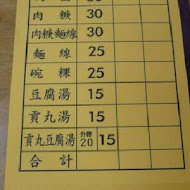 肉 粳 30
肉粳麵線 30
麵 線 25
碗 粿 25
豆腐湯 15
貢丸湯 15
貢丸豆腐湯 外帶20 15
合 計